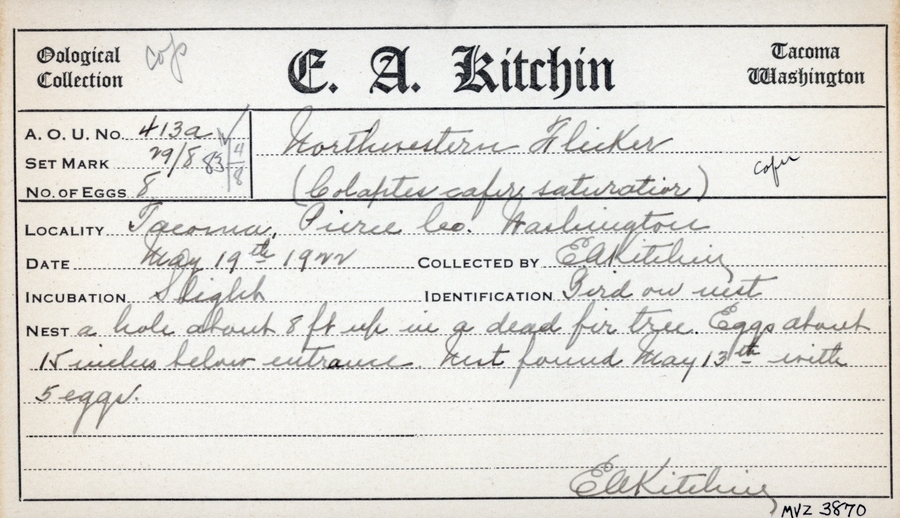 Oological Collection
cop
E. A. Kitchin
Tacoma Washington
A. O. U. No. 413a
Northwestern Flicker
Set Mark 29/8 83 4/8
cafer
No. of Eggs 8
(Colaptes cafer saturatior)
Locality Tacoma, Pierce Co. Washington
Date May 19th 1922 Collected by EAKitchin
Incubation Slight Identification Bird on nest
Nest a hole about 8 ft up in a dead fir tree. Eggs about
15 inches below entrance. Nest found May 13th with
5 eggs.
EAKitchin
MVZ 3870